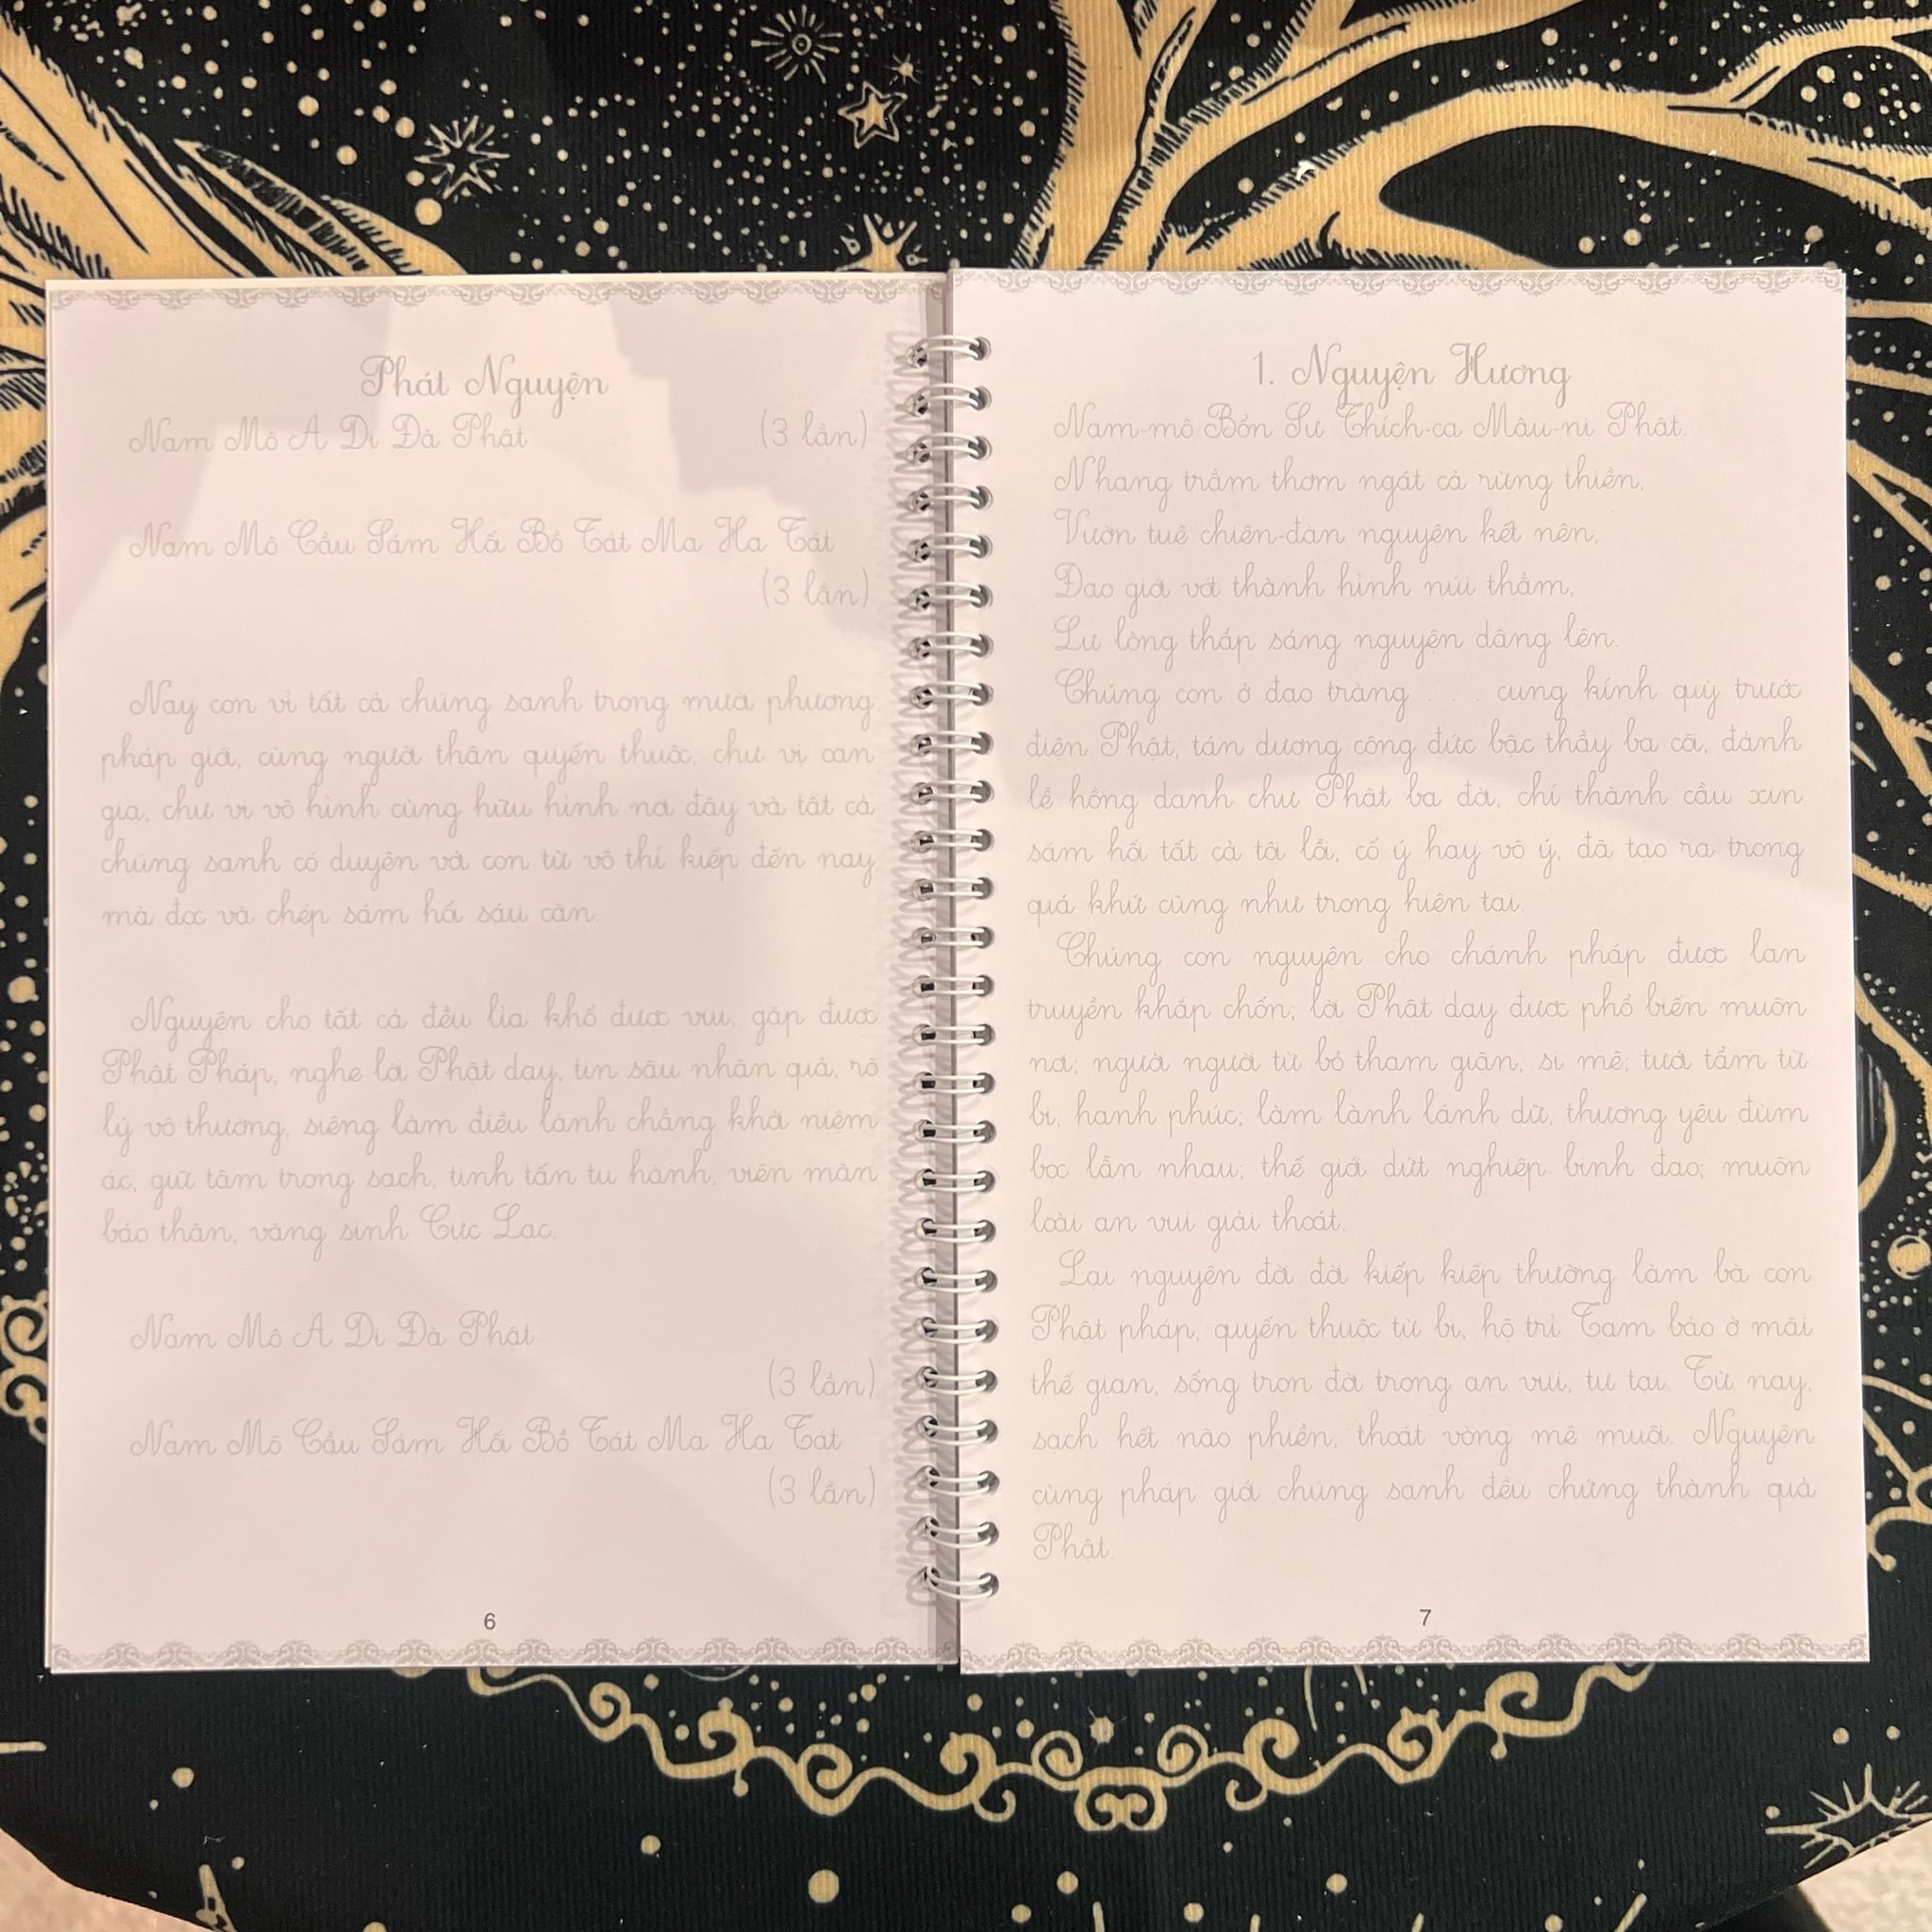 Phát Nguyện
Nam Mô A Di Đà Phật (3 lần)
Nam Mô Cầu Sám Hối Bồ Tát Ma Ha Tát
(3 lần)
Nay con vì tất cả chúng sanh trong mười phương
pháp giới, cùng người thân quyến thuộc, chư vị oan
gia, chư vị vô hình cùng hữu hình nơi đây và tất cả
chúng sanh có duyên với con từ vô thỉ kiếp đến nay
mà đọc và chép sám hối sáu căn.
Nguyện cho tất cả đều lìa khổ được vui, gặp được
Phật Pháp, nghe lời Phật dạy, tin sâu nhân quả, rõ
lý vô thường, siêng làm điều lành chẳng khởi niệm
ác, giữ tâm trong sạch, tinh tấn tu hành, viên mãn
báo thân, vãng sinh Cực Lạc.
Nam Mô A Di Đà Phật
(3 lần)
Nam Mô Cầu Sám Hối Bồ Tát Ma Ha Tát
(3 lần)
6
1. Nguyện Hương
Nam-mô Bổn Sư Thích-ca Mâu-ni Phật.
Nhang trầm thơm ngát cả rừng thiền,
Vườn tuệ chiên-đàn nguyện kết nên,
Đao giới vót thành hình núi thẳm,
Lư lòng thắp sáng nguyện dâng lên.
Chúng con ở đạo tràng . . . . cung kính quỳ trước
điện Phật, tán dương công đức bậc thầy ba cõi, đảnh
lễ hồng danh chư Phật ba đời, chí thành cầu xin
sám hối tất cả tội lỗi, cố ý hay vô ý, đã tạo ra trong
quá khứ cũng như trong hiện tại.
Chúng con nguyện cho chánh pháp được lan
truyền khắp chốn; lời Phật dạy được phổ biến muôn
nơi; người người từ bỏ tham giận, si mê; tưới tẩm từ
bi, hạnh phúc; làm lành lánh dữ, thương yêu đùm
bọc lẫn nhau; thế giới dứt nghiệp binh đao; muôn
loài an vui giải thoát.
Lại nguyện đời đời kiếp kiếp thường làm bà con
Phật pháp, quyến thuộc từ bi, hộ trì Tam bảo ở mãi
thế gian, sống trọn đời trong an vui, tự tại. Từ nay,
sạch hết não phiền, thoát vòng mê muội. Nguyện
cùng pháp giới chúng sanh đều chứng thành quả
Phật.
7